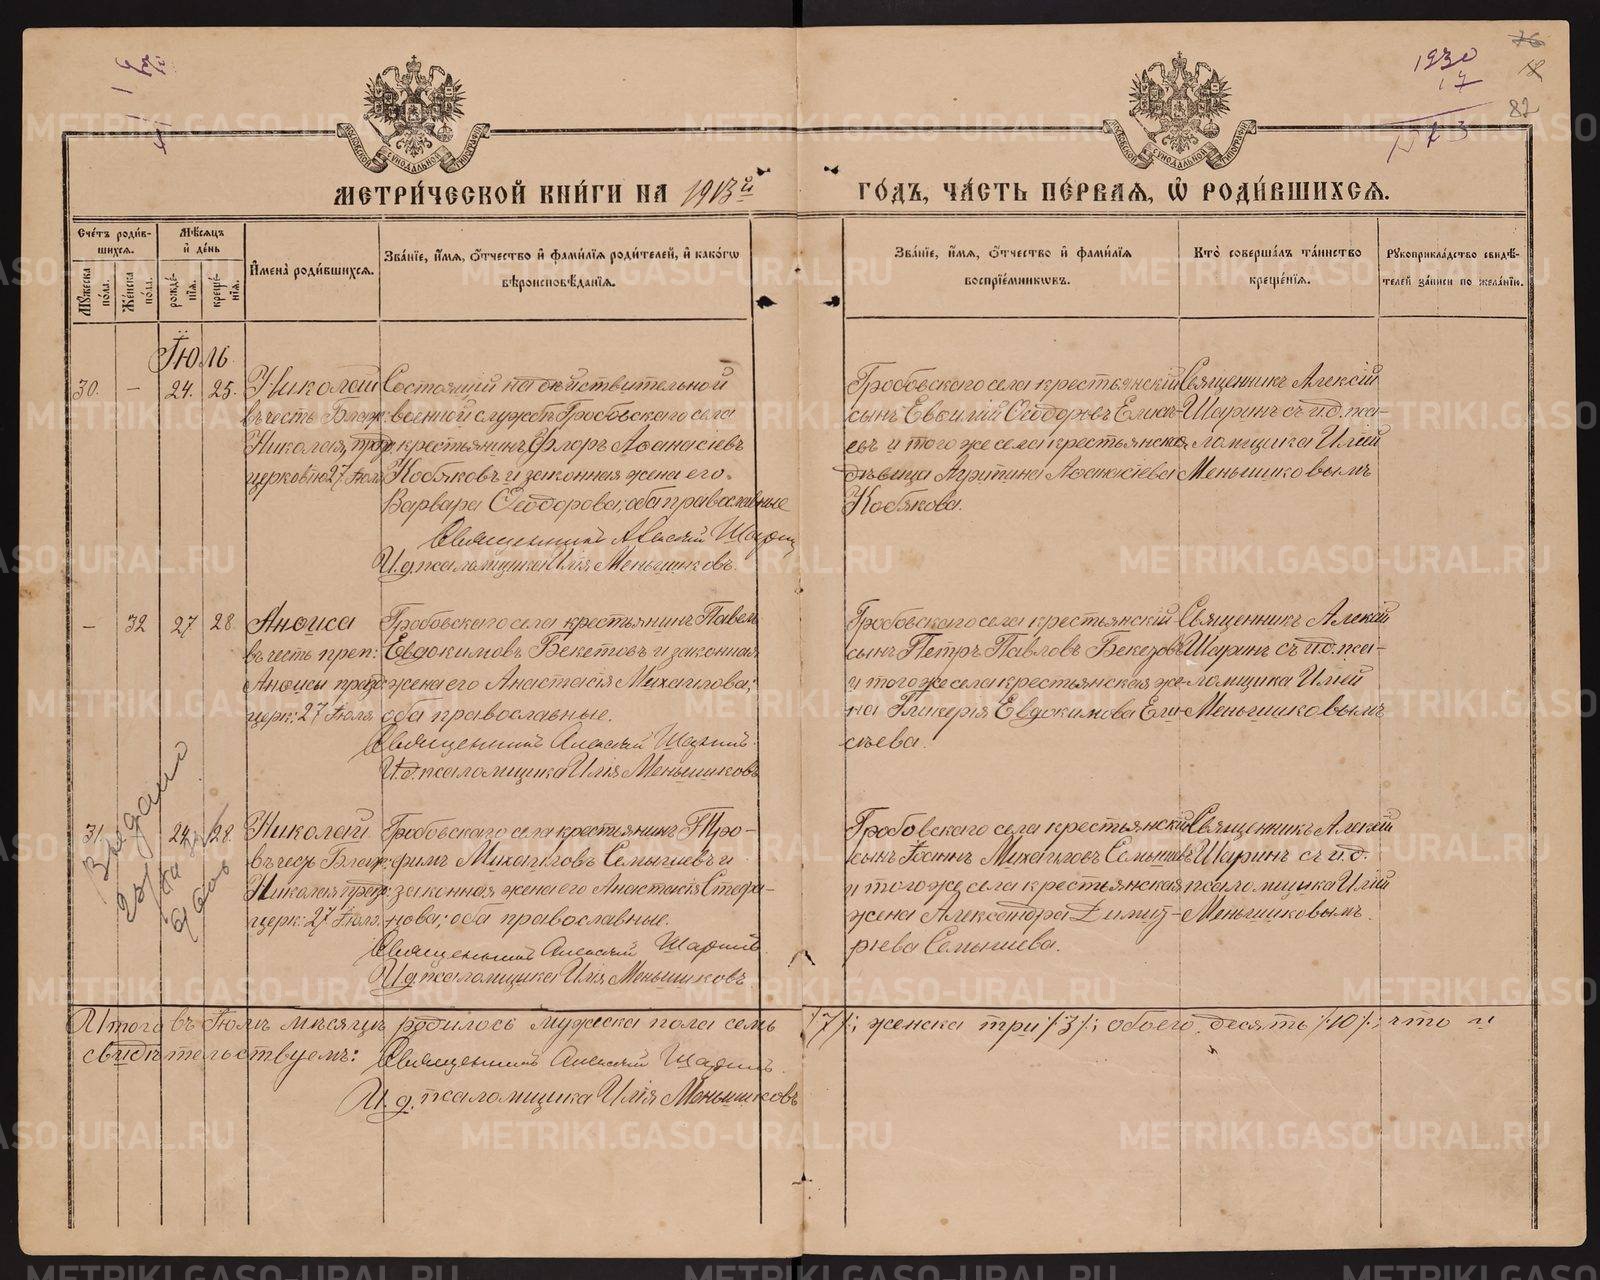 1930
17
82
МЕТРИ́ЧЕСКОЙ КНИ́ГИ НА 1913й ГО́ДЪ, ЧА́СТЬ ПЕ́РВАѦ, Ѡ҆ РОДИ́ВШИХСѦ.
Сче́тъ роди́в-
шихсѧ.
Мꙋ́жеска по́ла.
Же́нска по́ла.
Мѣ́сѧцъ и҆ де́нь
рожде́-
нїѧ.
креще́-
нїѧ.
И҆мена̀ роди́вшихсѧ.
Зва́нїе, и҆́мѧ, ѻ҆́тчество и҆ фами́лїѧ роди́телей, и҆ како́гѡ
вѣроисповѣ́данїѧ.
Зва́нїе, и҆́мѧ, ѻ҆́тчество и҆ фами́лїѧ
воспрїе́мникѡвъ.
Кто̀ соверша́лъ та́инство
креще́нїѧ.
Рꙋкоприкла́дство свидѣ́-
телей за́писи по жела́нїю.
Іюль
30. — 24. 25. Николай
въ честь Блаж.
Николая, празд.
церковію 27 Іюля
Состоящій на дѣйствительной
военной службѣ Гробовскаго села
крестьянинъ Флоръ Аѳанасіевъ
Кобяковъ и законная жена его
Варвара Ѳеодорова; оба православные
Священникъ Алексій Шаринъ
И. д. псаломщика Илія Меньшиковъ.
Гробовскаго села крестьянскій
сынъ Евѳимій Ѳеодоровъ Елис-
евъ и того же села крестьянская
дѣвица Аѳанасіева
Кобякова.
Священникъ Алексій
Шаринъ съ и. д. пса-
ломщика Иліей
Меньшиковымъ
— 32 27 28. Анѳиса
въ честь преп:
Анѳисы празд:
церк: 27 Іюля
Гробовскаго села крестьянинъ Павелъ
Евдокимовъ Бекетовъ и законная
жена его Анастасія Михаилова;
оба православные.
Священникъ Алексій Шаринъ.
И. д. псаломщика Илія Меньшиковъ
Гробовскаго села крестьянскій
сынъ Петръ Павловъ Бекетовъ
и того же села крестьянская же-
на Гликерія Евдокимова Ели-
сѣева.
Священникъ Алексій
Шаринъ съ и. д. пса-
ломщика Иліей
Меньшиковымъ
31. 27 28. Николай
въ честь Блаж:
Николая празд:
церк: 27 Іюля.
Гробовскаго села крестьянинъ Тро-
фимъ Михаиловъ Семышевъ и
законная жена его Анастасія Стефа-
нова; оба православные.
Священникъ Алексій Шаринъ
И. д. псаломщика Илія Меньшиковъ.
Гробовскаго села крестьянскій
сынъ Іоаннъ Михаиловъ Семышевъ
и того же села крестьянская
жена Александра Димит-
ріева Семышева.
Священникъ Алексій
Шаринъ съ и. д.
псаломщика Иліей
Меньшиковымъ.
Итого въ Іюлѣ мѣсяцѣ родилось мужеска пола семь /7/; женска три /3/; обоего десять /10/; что и
свидѣтельствуемъ: Священникъ Алексій Шаринъ.
И. д. псаломщика Илія Меньшиковъ
METRIKI.GASO-URAL.RU